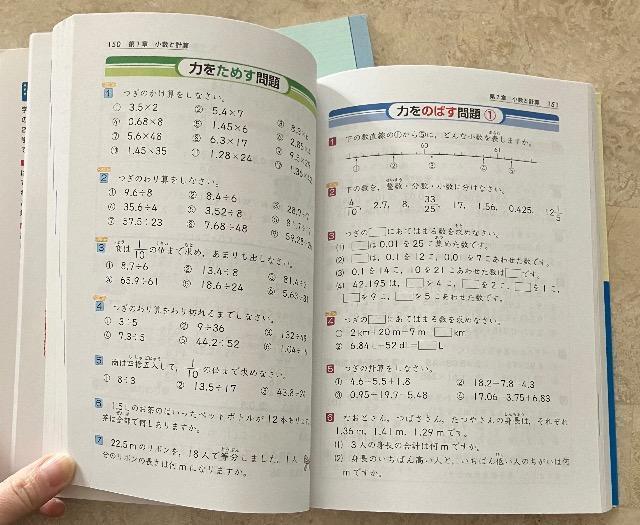 150 第7章 小数と計算
力をためす問題
1 つぎのかけ算をしなさい。
① 3.5×2 ② 5.4×7
④ 0.68×8 ⑤ 1.45×6
⑦ 5.6×48 ⑧ 6.3×17
⑩ 1.45×35 ⑪ 1.28×24
2 つぎのわり算をしなさい。
① 9.6÷8 ② 8.4÷6
④ 35.6÷4 ⑤ 3.52÷8
⑦ 57.5÷23 ⑧ 7.68÷48
3 商は 1/10 の位まで求め、あまりも出しなさい。
① 8.7÷6 ② 13.4÷8
④ 65.9÷61 ⑤ 18.6÷24
4 つぎのわり算をわり切れるまでしなさい。
① 3÷5 ② 9÷36
④ 7.3÷5 ⑤ 44.2÷52
5 商は四捨五入して、1/10 の位まで求めなさい。
① 8÷3 ② 13.5÷17
6 1.5Lのお茶のはいったペットボトルが12本
茶は全部で何しありますか。
7 22.5mのリボンを、18人で等分しました。1人
分のリボンの長さは何mになりますか。
第7章 小数と計算 151
力をのばす問題 ①
1 下の数直線の①から⑤は、どんな小数を表しますか。
60 61
① ② ③ ④ ⑤
2 下の数を、整数・分数・小数に分けなさい。
4/10, 2.7, 8, 33/25, 17, 1.56, 0.425, 12 1/5
3 つぎの□にあてはまる数を求めなさい。
(1) □は0.01を25こ集めた数です。
(2) □は、0.1を12こ、0.01を7こあわせた数です。
(3) 0.1を14こ、10を21こあわせた数は□です。
(4) 42.195は、□を4こ、□を2こ、□を1こ、
□を9こ、□を5こあわせた数です。
4 つぎの□にあてはまる数を求めなさい。
① 2km+20m-7m=□km
② 6.84L-52dL=□L
5 つぎの計算をしなさい。
① 4.6-5.5+1.8 ② 18.2-7.8-4.3
③ 0.95+19.7-5.48 ④ 17.06-3.75+6.83
6 なおとさん、つばささん、たつやさんの身長は、それぞれ
1.36m、1.41m、1.29mです。
(1) 3人の身長の合計は何mですか。
(2) 身長のいちばん高い人と、いちばん低い人のちがいは何
mですか。